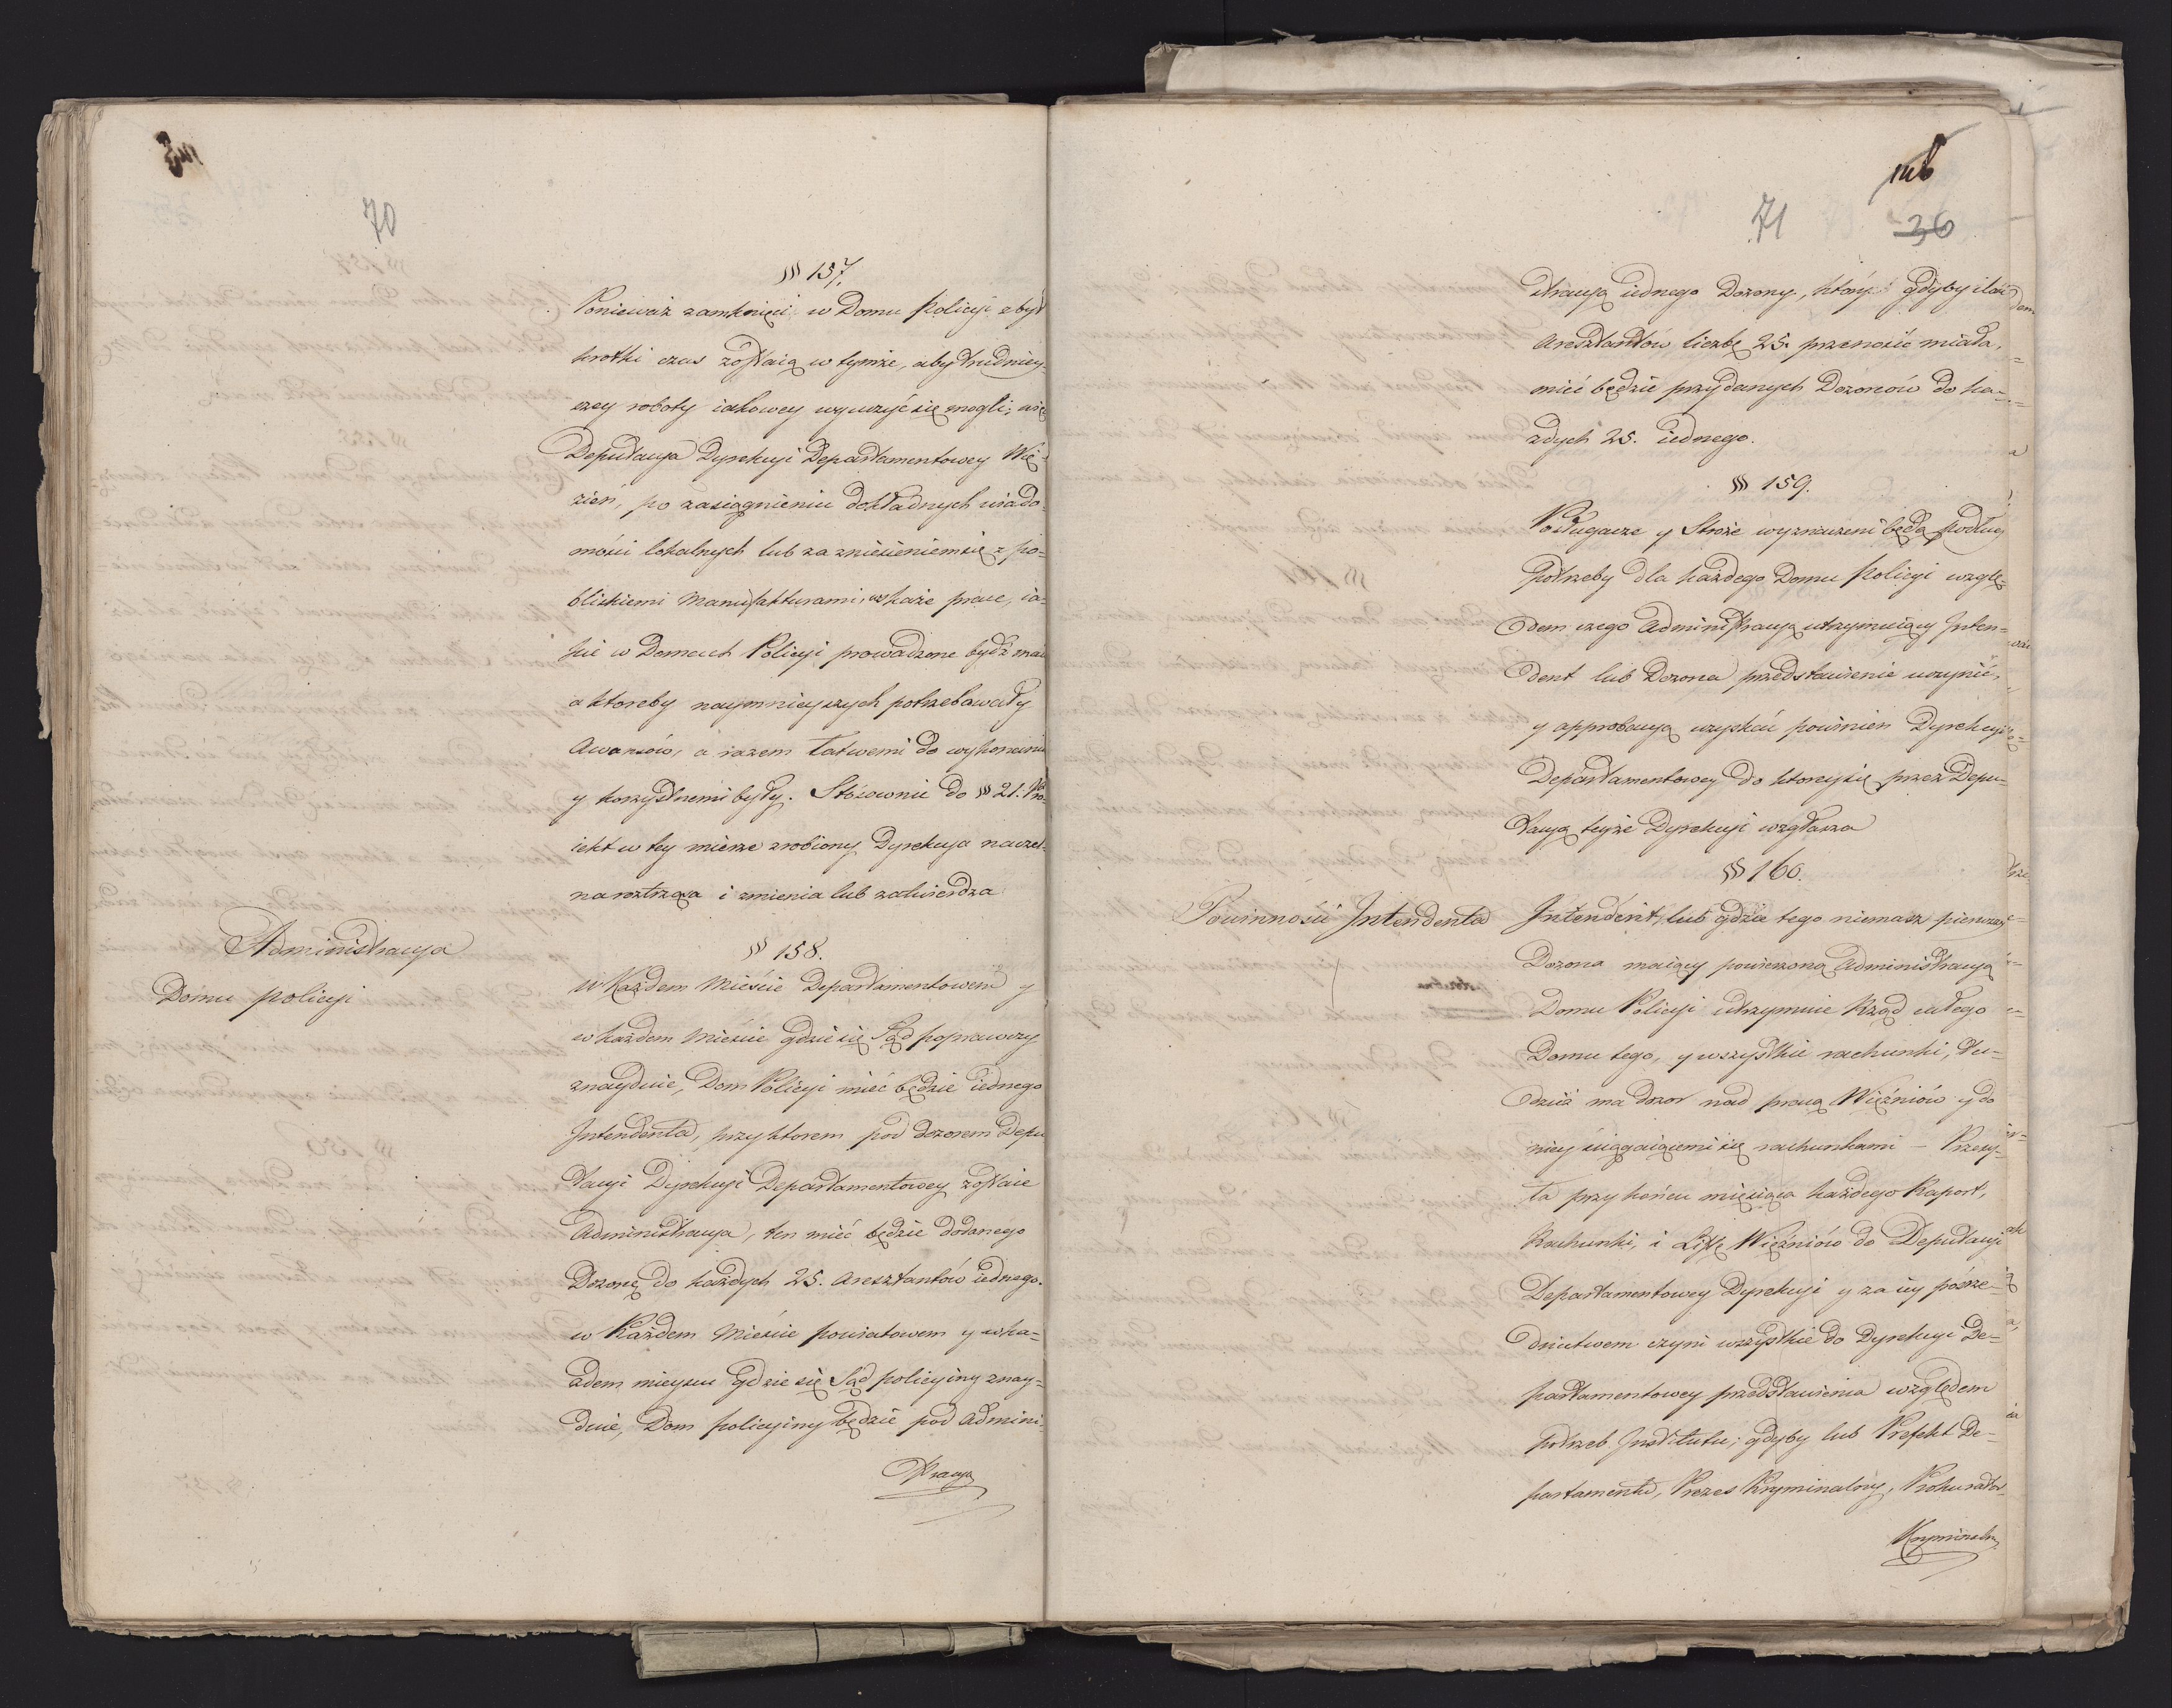 70
§§ 157.
Ponieważ zamknięci w Domu Policyi zbyt
krotki czas zostaią w tymże, aby trudniey-
szey roboty iakowey wyuczyć się mogli; więc
Deputacya Dyrekcyi Departamentowey Wię-
zień, po zasiągnieniu dokładnych wiado-
mości lokalnych lub za zniesieniem się z po-
bliskiemi Manufakturami, wskaże prace, ia-
kie w Domach Policyi prowadzone bydź maią
a ktoreby naymnieyszych potrzebowały
Awansów, a razem łatwemi do wykonania
y korzystnemi były. Stósownie do §§ 21. Pro-
iekt w tey mierze zrobiony Dyrekcya naczel-
na roztrząsa i zmienia lub zatwierdza
Administracya
Domu policyi
§§ 158.
W Każdem Mieście Departamentowem y
w każdem Mieście gdzie się Sąd poprawczy
znayduie, Dom Policyi mieć będzie iednego
Intendenta, przy ktorem pod dozorem Depu
tacyi Dyrekcyi Departamentowey zostaie
Administracya, ten mieć będzie dodanego
Dozorcę do każdych 25. Aresztantów iednego.
w Każdem Mieście powiatowem y w ka-
żdem mieyscu gdzie się Sąd policyiny znay-
duie, Dom policyiny będzie pod Admini-
stracyą
71 36
stracyą iednego Dozorcy, który gdyby ilość
Aresztantów liczbę 25. przenosić miała,
mieć będzie przydanych Dozorców do ka-
żdych 25. iednego.
§§ 159.
Posługacze y Stróże wyznaczeni będą podług
potrzeby dla każdego Domu Policyi wzglę-
dem czego Administracyą utrzymuiący Inten-
dent lub Dozorca przedstawienie uczynić,
y approbacyą uzyskać powinien Dyrekcyi
Departamentowey do ktorey się przez Depu-
tacyą teyże Dyrekcyi wzgłasza
§§ 160.
Powinności Intendenta
Intendent, lub gdzie tego niemasz pierwszy
Dozorca maiący powierzoną Administracyą
Domu Policyi utrzymuie Rząd całego
Domu tego, y wszystkie rachunki, tu-
dzież ma dozor nad pracą Więźniów y do
niey ściągaiącemi się rachunkami – Przesy-
ła przy końcu miesiąca każdego Raport,
Rachunki, i Listę Więźniów do Deputacyi
Departamentowey Dyrekcyi y za iey pośre-
dnictwem czyni wszystkie do Dyrekcyi De-
partamentowey przedstawienia względem
potrzeb Institutu; gdyby lub Prefekt De-
partamentu, Prezes Kryminalny, Prokurator
Kryminalny